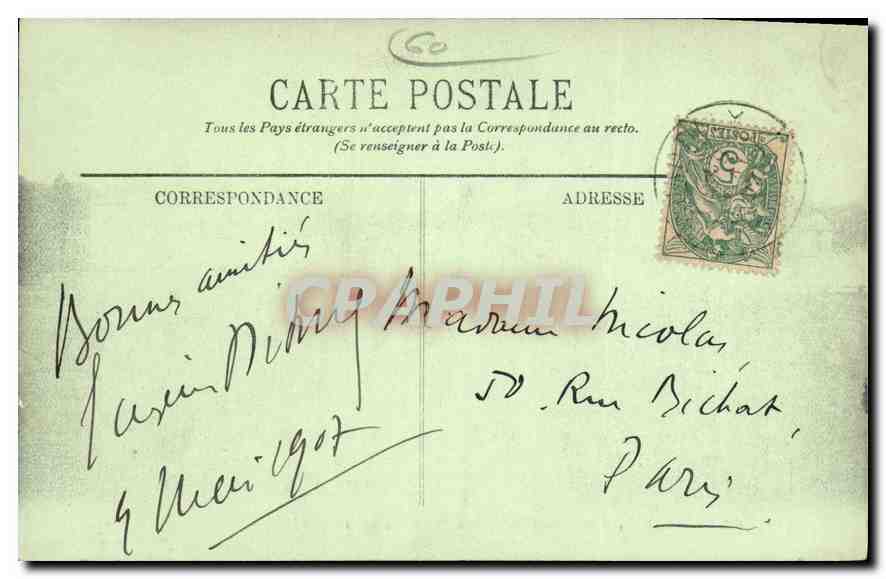 60
CARTE POSTALE
Tous les Pays étrangers n'acceptent pas la Correspondance au recto.
(Se renseigner à la Poste).
CORRESPONDANCE
ADRESSE
Bonnes amitiés
9 Mai 1907
Madame Nicolas,
50. Rue Bichat,
Paris
CPAPHIL
5
POSTES